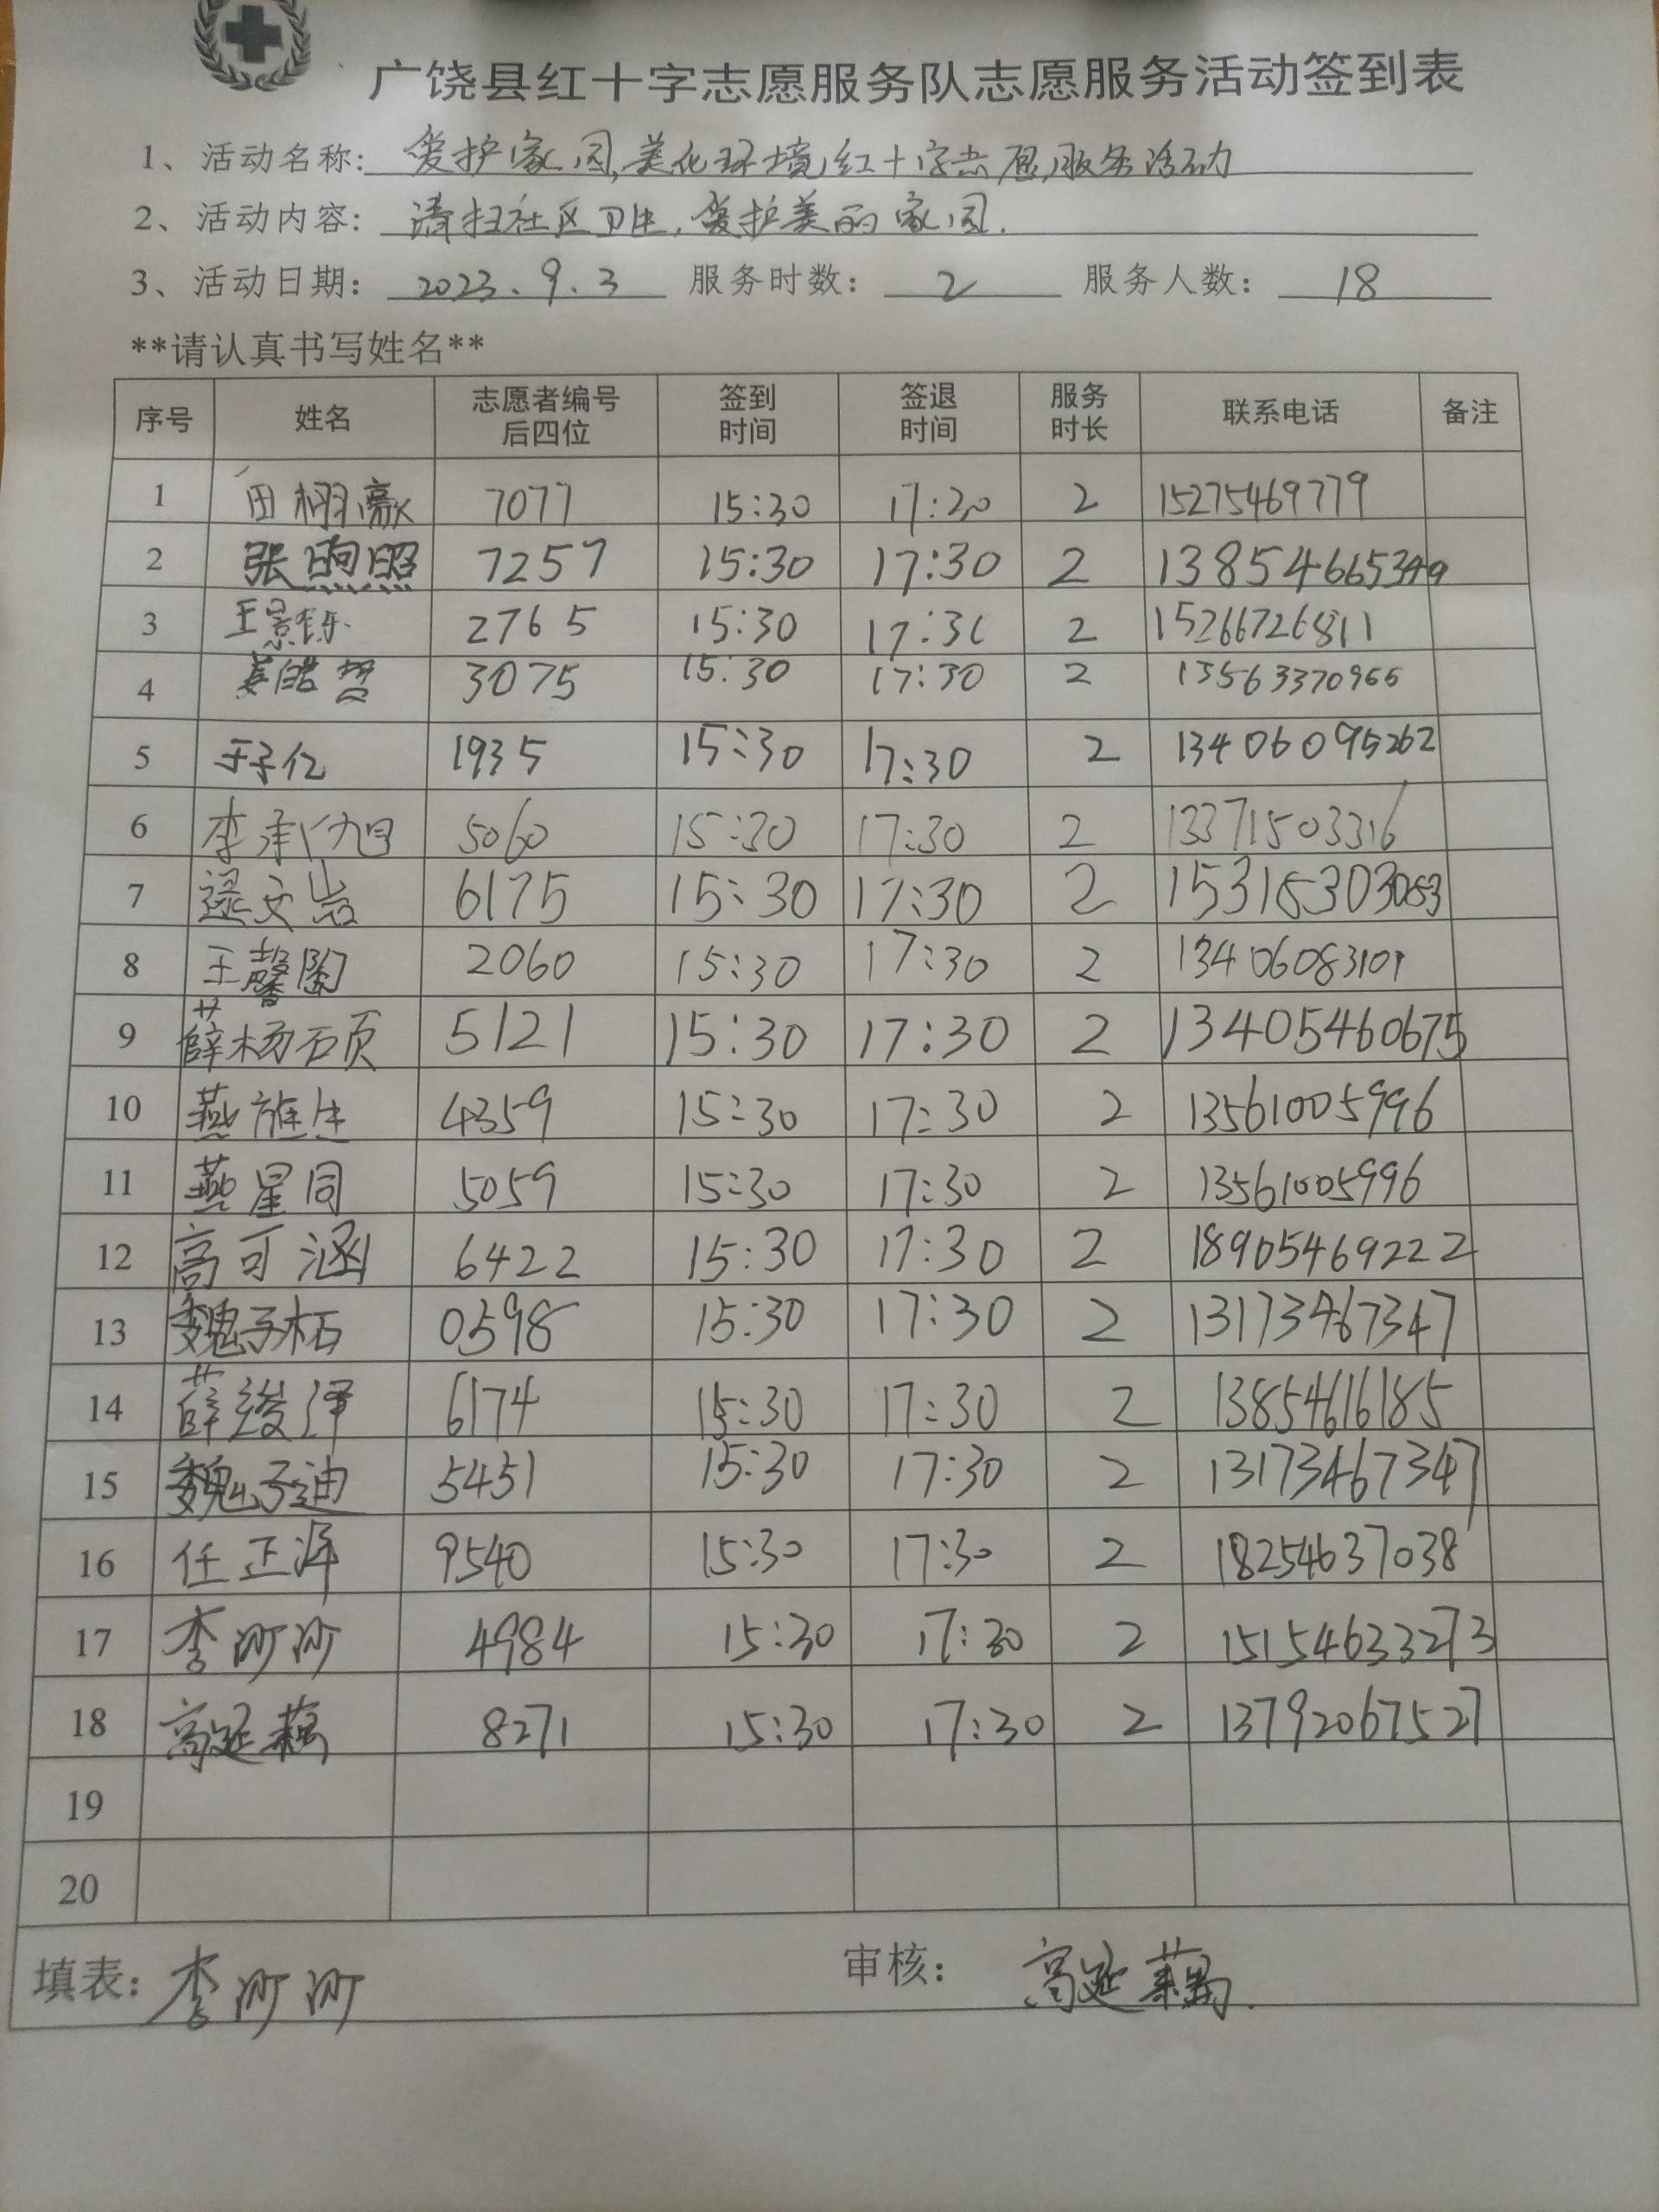 广饶县红十字志愿服务队志愿服务活动签到表
1、活动名称: 爱护家园,美化环境,红十字志愿服务活动
2、活动内容: 清扫社区卫生,爱护美丽家园.
3、活动日期: 2023.9.3 服务时数: 2 服务人数: 18
**请认真书写姓名**
序号 姓名 志愿者编号后四位 签到时间 签退时间 服务时长 联系电话 备注
1 田栩歊 7077 15:30 17:30 2 15275469779
2 张煦照 7257 15:30 17:30 2 13854665349
3 王景钰 2765 15:30 17:30 2 15266726811
4 姜皓哲 3075 15:30 17:30 2 13563370966
5 于子仁 1935 15:30 17:30 2 13406095262
6 李承旭 5060 15:30 17:30 2 13371503316
7 逯文岩 6175 15:30 17:30 2 15315303053
8 王馨陶 2060 15:30 17:30 2 13406083101
9 薛杨硕 5121 15:30 17:30 2 13405460675
10 燕 4359 15:30 17:30 2 13561005996
11 燕星同 5059 15:30 17:30 2 13561005996
12 高可涵 6422 15:30 17:30 2 18905469222
13 魏子柘 0598 15:30 17:30 2 13173467347
14 薛逡泽 6174 15:30 17:30 2 13854616185
15 魏子迪 5451 15:30 17:30 2 13173467347
16 任正泽 9540 15:30 17:30 2 18254637038
17 李沙沙 4984 15:30 17:30 2 15154633273
18 高延藕 8271 15:30 17:30 2 13792067527
19
20
填表: 李沙沙 审核: 高延藕.